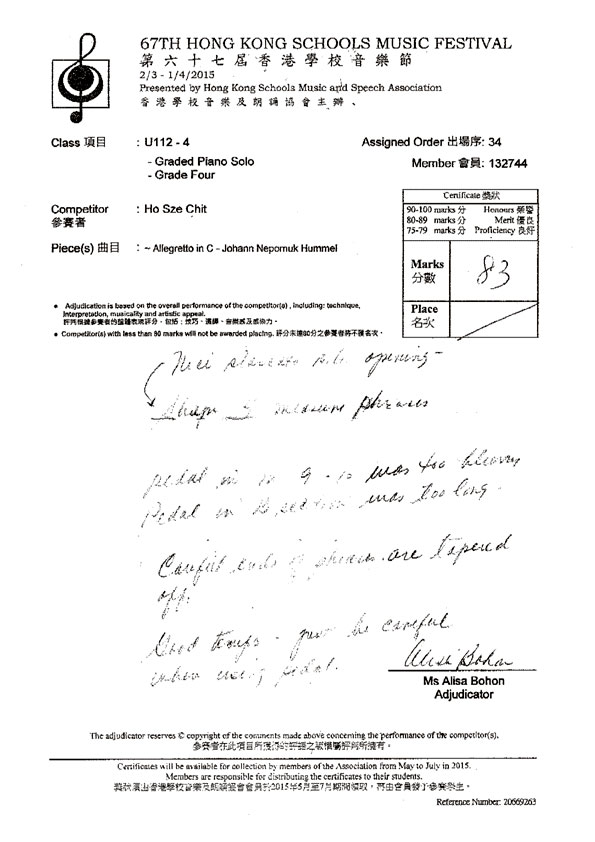 67TH HONG KONG SCHOOLS MUSIC FESTIVAL
第六十七屆香港學校音樂節
2/3 - 1/4/2015
Presented by Hong Kong Schools Music and Speech Association
香港學校音樂及朗誦協會主辦、
Class 項目 : U112 - 4
Assigned Order 出場序: 34
- Graded Piano Solo
- Grade Four
Member 會員: 132744
Competitor : Ho Sze Chit
參賽者
Piece(s) 曲目 : ~ Allegretto in C - Johann Nepomuk Hummel
Certificate 獎狀
90-100 marks 分 Honours 榮譽
80-89 marks 分 Merit 優良
75-79 marks 分 Proficiency 良好
Marks
分數
83
Place
名次
• Adjudication is based on the overall performance of the competitor(s), including: technique,
interpretation, musicality and artistic appeal.
評判根據參賽者的整體表現評分，包括：技巧、演繹、音樂感及感染力。
• Competitor(s) with less than 80 marks will not be awarded placing. 評分未達80分之參賽者將不獲名次。
Nice staccato opening -
Shape measure phrases
pedal in m 9 - was too blurry
Pedal in B section was too long.
Careful ends of phrases are tapered
off.
Good tempo - just be careful
when using pedal.
Alisa Bohon
Ms Alisa Bohon
Adjudicator
The adjudicator reserves © copyright of the comments made above concerning the performance of the competitor(s).
參賽者在此項目所獲得的評語之版權屬評判所擁有。
Certificates will be available for collection by members of the Association from May to July in 2015.
Members are responsible for distributing the certificates to their students.
獎狀須由香港學校音樂及朗誦協會會員於2015年5月至7月期間領取，再由會員發予參賽學生。
Reference Number: 20669263